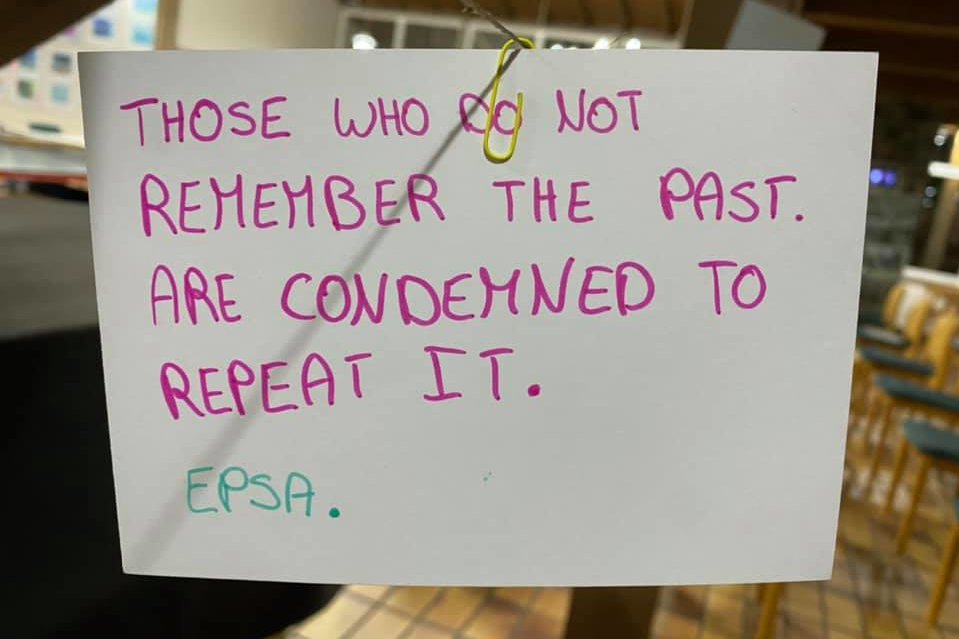 THOSE WHO DO NOT
REMEMBER THE PAST.
ARE CONDEMNED TO
REPEAT IT.
EPSA.